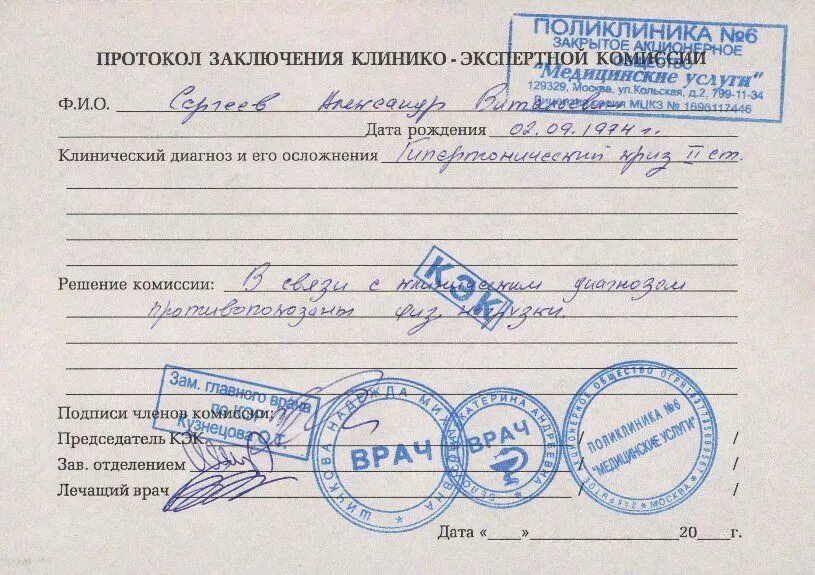 ПОЛИКЛИНИКА №6
ЗАКРЫТОЕ АКЦИОНЕРНОЕ
ОБЩЕСТВО
"Медицинские услуги"
129329, Москва, ул.Кольская, д.2, 799-11-34
МЦКЗ № 1696117446
ПРОТОКОЛ ЗАКЛЮЧЕНИЯ КЛИНИКО - ЭКСПЕРТНОЙ КОМИССИИ
Ф.И.О. Сергеев Александр Витальевич
Дата рождения 02.09.1974 г.
Клинический диагноз и его осложнения Гипертонический криз II ст.
КЭК
Решение комиссии: В связи с клиническим диагнозом
противопоказаны физ. нагрузки.
Зам. главного врача
по КЭР
Кузнецова О.Т.
Подписи членов комиссии:
Председатель КЭК / /
Зав. отделением / /
Лечащий врач / /
ШИНКОВА НАДЕЖДА МИХ ВНА
ВРАЧ
БЕЛОУСОВА ЕКАТЕРИНА АНДРЕЕВНА
ВРАЧ
ЗАКРЫТОЕ АКЦИОНЕРНОЕ ОБЩЕСТВО ОГРН
ПОЛИКЛИНИКА №6
"МЕДИЦИНСКИЕ УСЛУГИ"
МОСКВА
Дата «___»____________20___г.